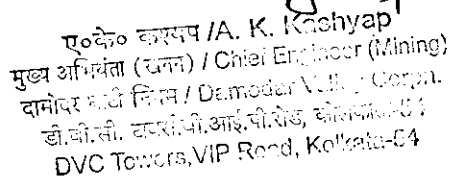 ए०के० कश्यप /A. K. Kashyap
मुख्य अभियंता (खनन) / Chief Engineer (Mining)
दामोदर घाटी निगम / Damodar Valley Corpn.
डी.वी.सी. टावर्स,वी.आई.पी.रोड, कोलकाता-54
DVC Towers,VIP Road, Kolkata-54